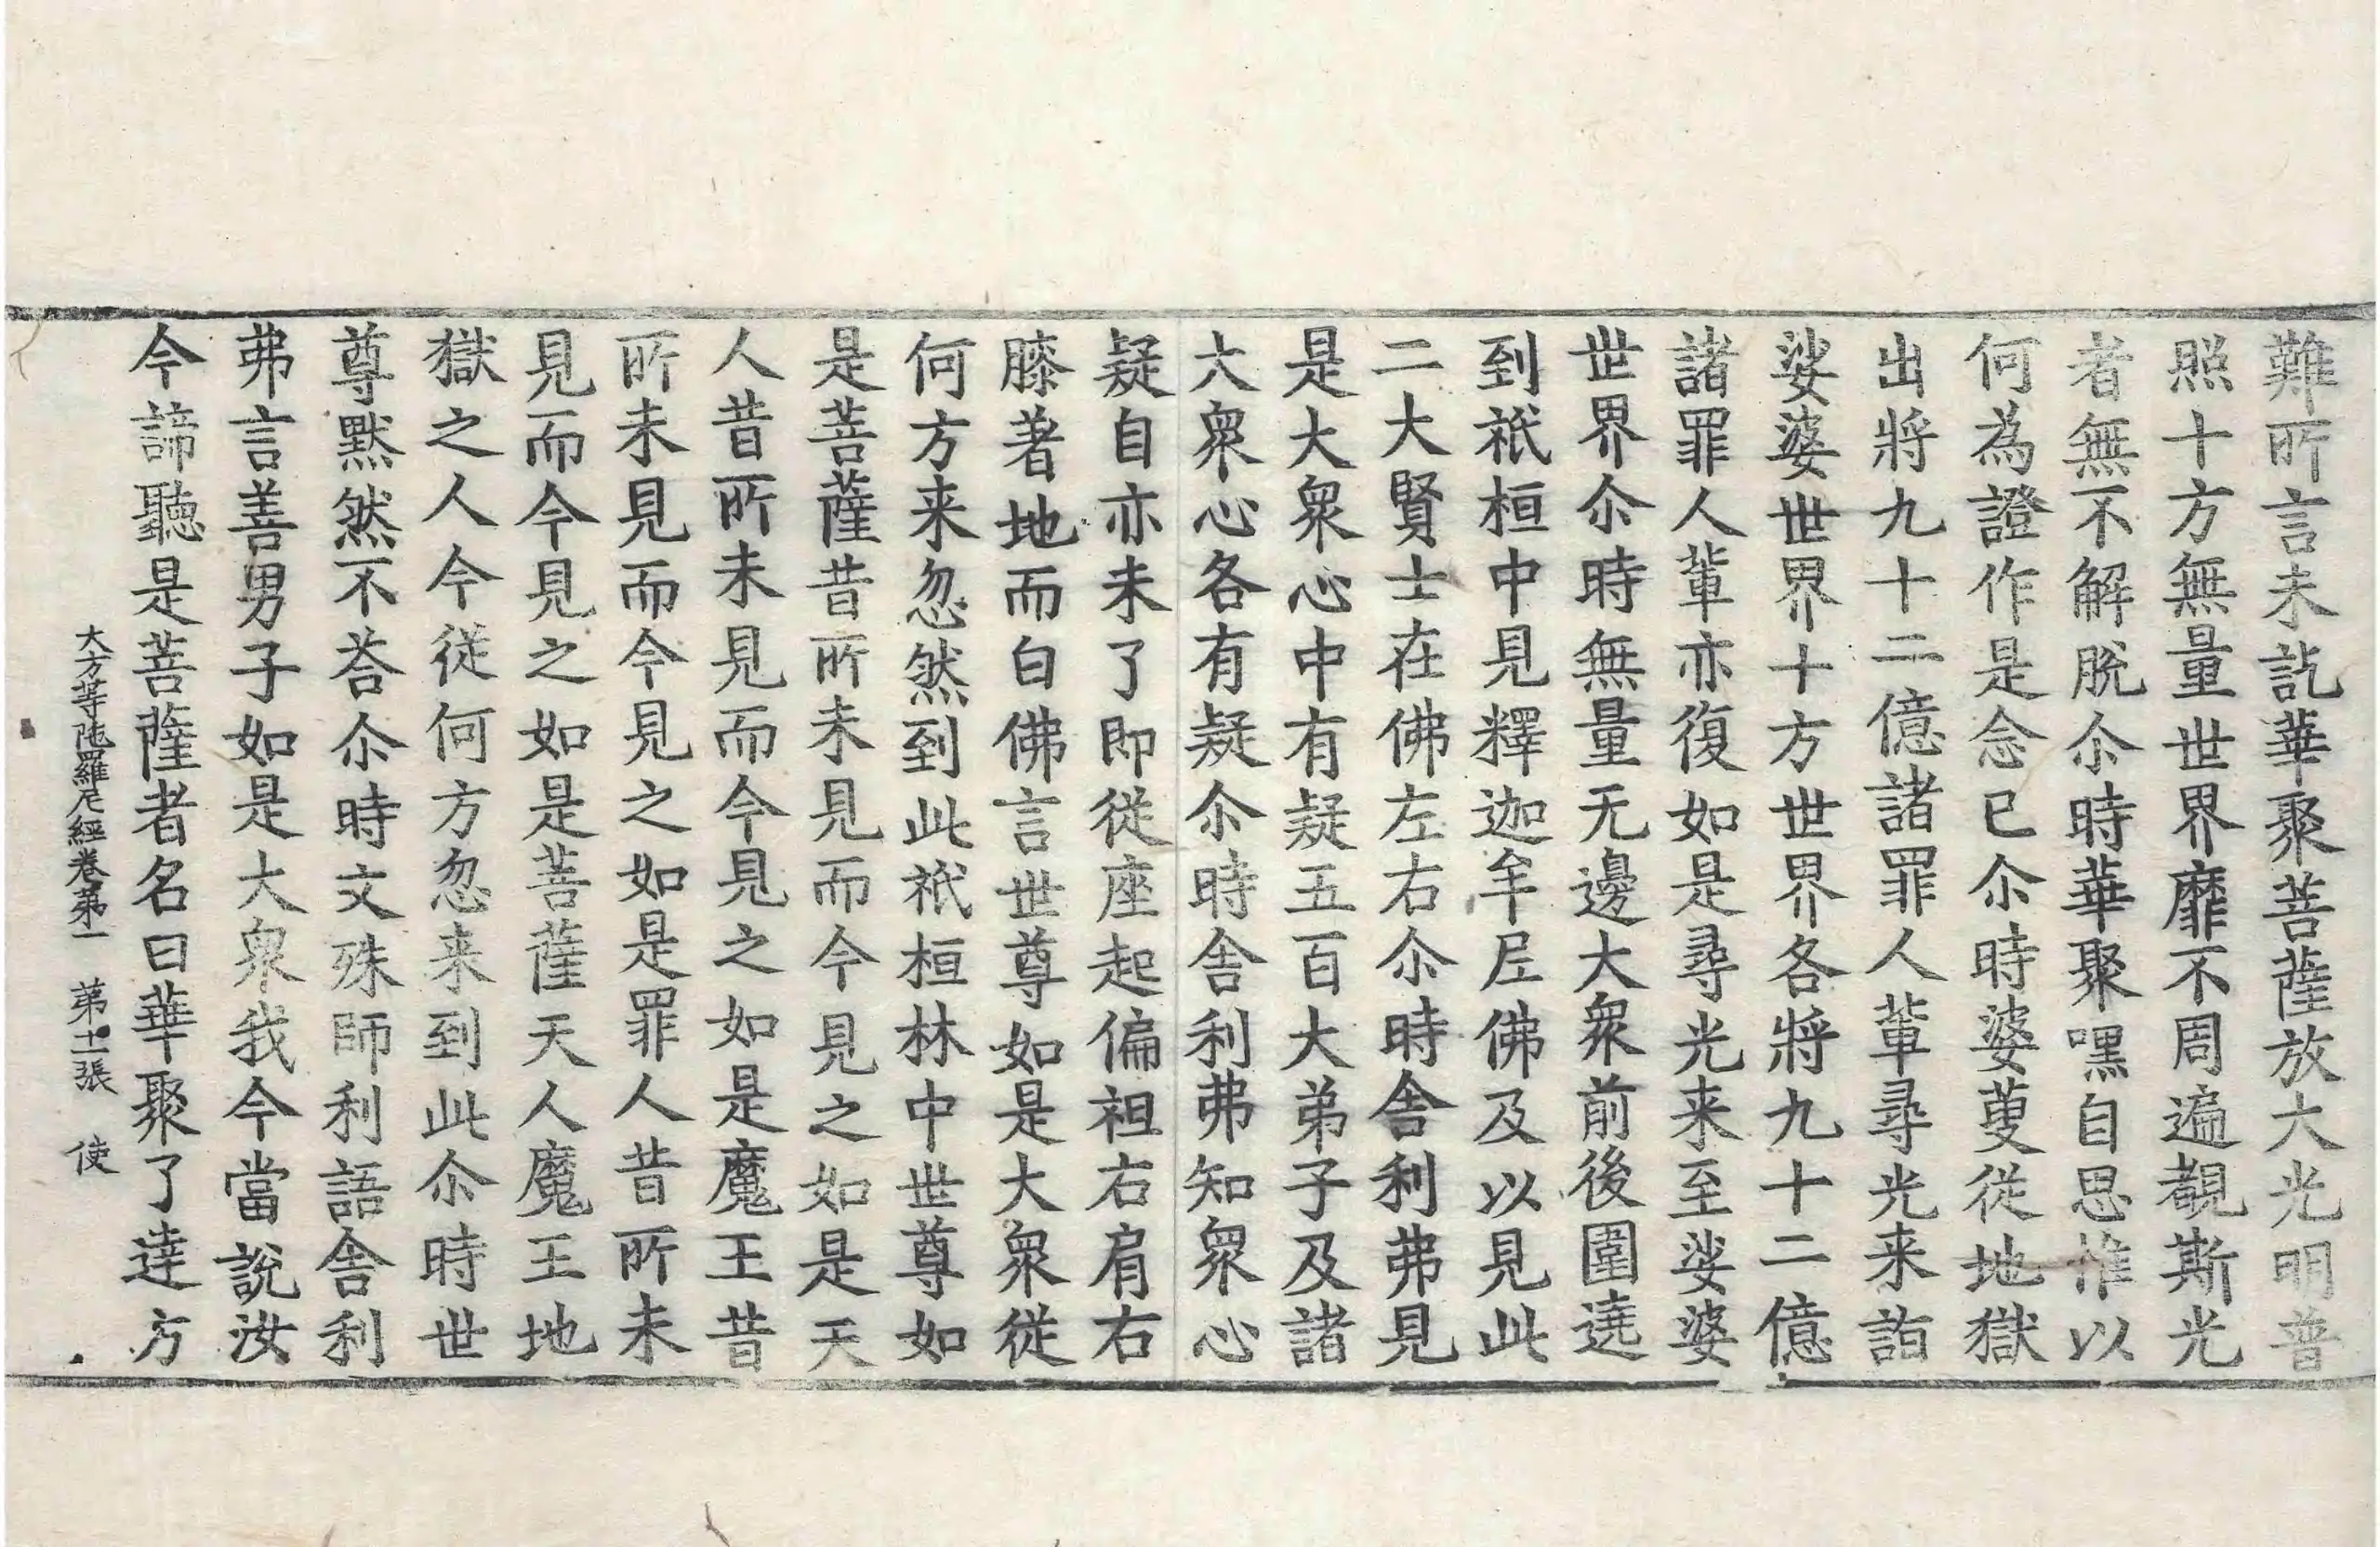 難所言未訖華聚菩薩放大光明普
照十方無量世界靡不周遍覩斯光
者無不解脫尒時華聚嘿自思惟以
何為證作是念已尒時婆藪從地獄
出將九十二億諸罪人輩尋光来詣
娑婆世界十方世界各將九十二億
諸罪人輩亦復如是尋光来至娑婆
世界尒時無量无邊大衆前後圍遶
到祇桓中見釋迦牟尼佛及以見此
二大賢士在佛左右尒時舎利弗見
是大衆心中有疑五百大弟子及諸
大衆心各有疑尒時舎利弗知衆心
疑自亦未了即從座起偏袒右肩右
膝著地而白佛言世尊如是大衆從
何方来忽然到此祇桓林中世尊如
是菩薩昔所未見而今見之如是天
人昔所未見而今見之如是魔王昔
所未見而今見之如是罪人昔所未
見而今見之如是菩薩天人魔王地
獄之人今從何方忽来到此尒時世
尊默然不荅尒時文殊師利語舎利
弗言善男子如是大衆我今當說汝
今諦聽是菩薩者名曰華聚了達方
大方等陁羅尼經卷第一 第十一張 使